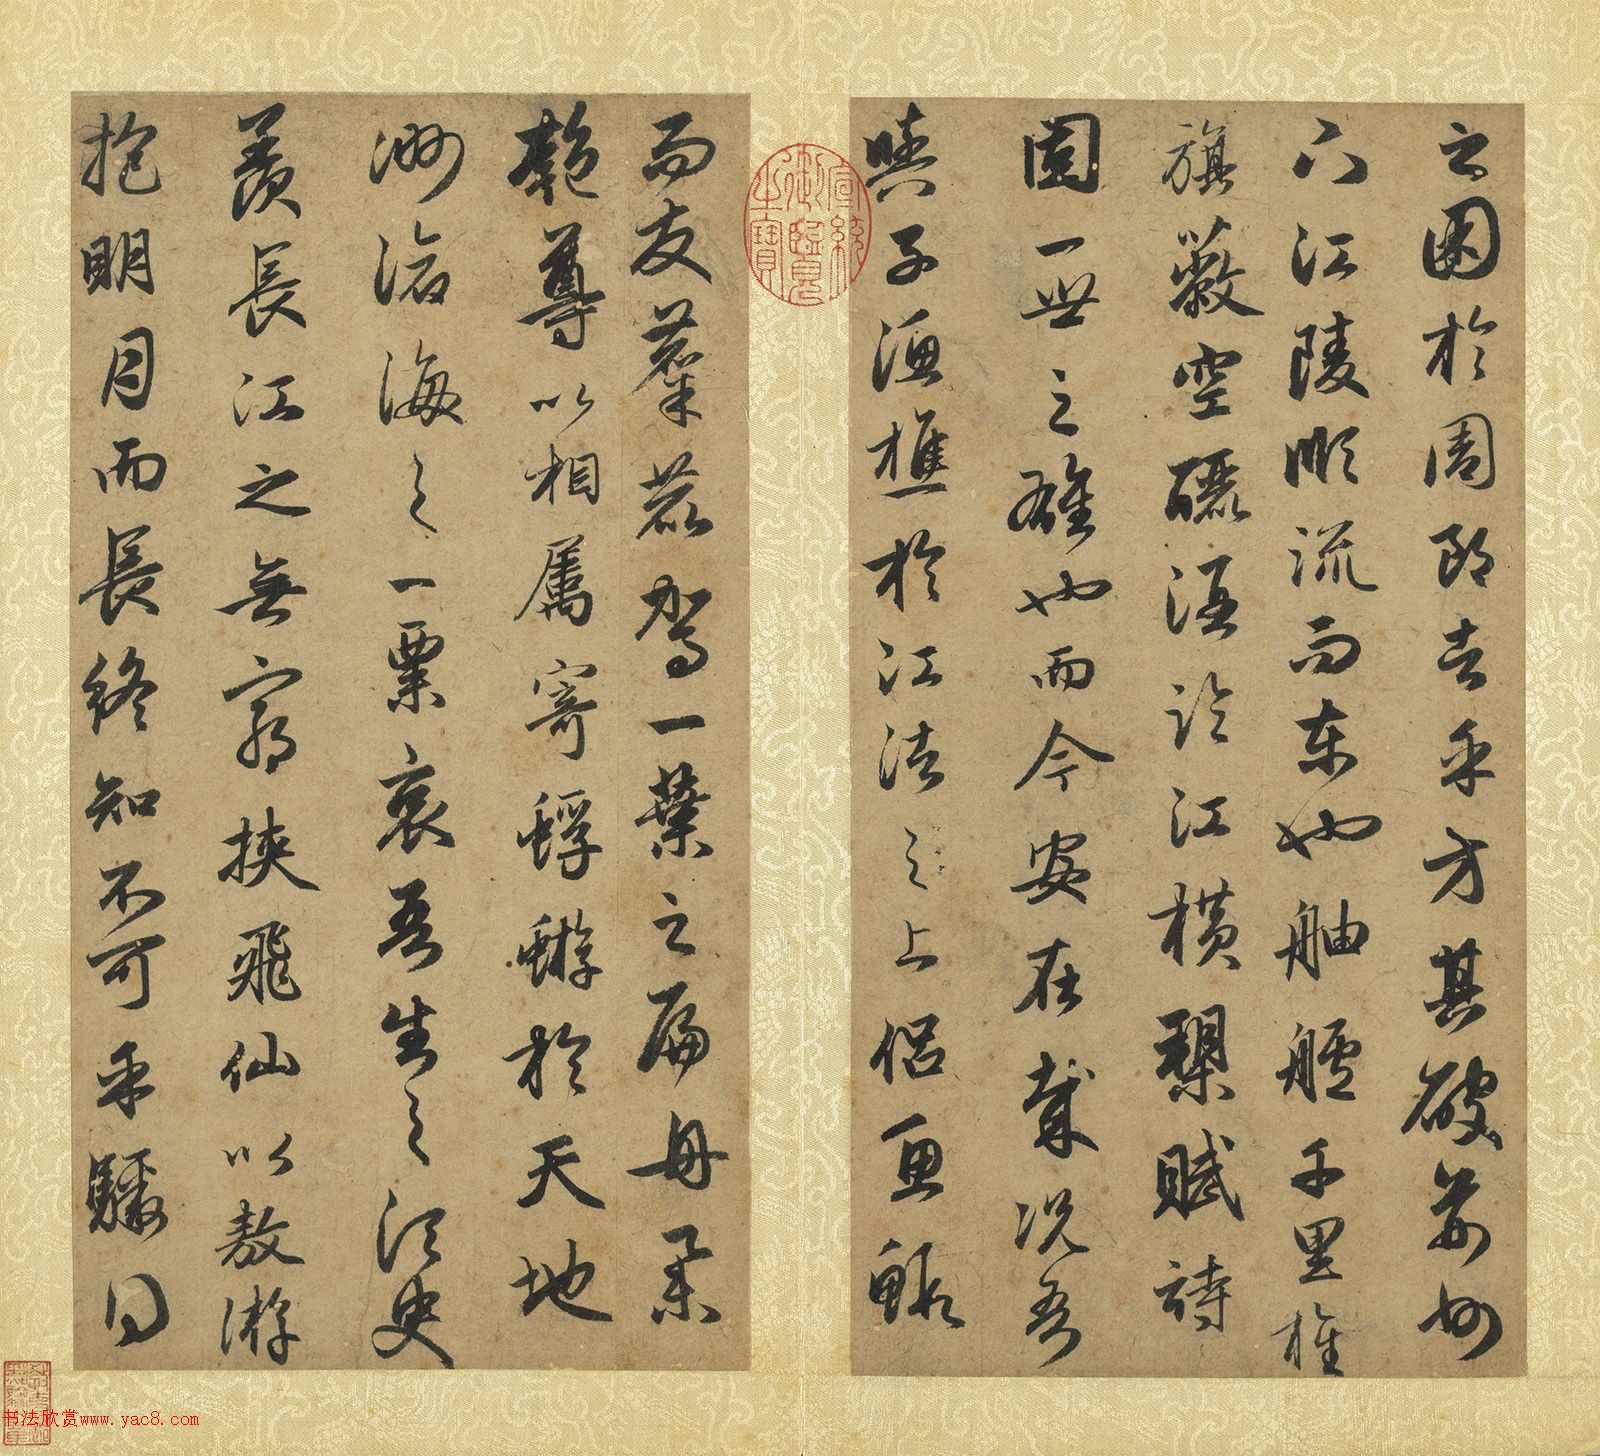 之困於周郎者乎方其破荊州
下江陵順流而東也舳艫千里旌
旗蔽空釃酒臨江橫槊賦詩
固一世之雄也而今安在哉況吾
與子漁樵於江渚之上侶魚蝦
而友麋鹿駕一葉之扁舟舉
匏尊以相屬寄蜉蝣於天地
渺滄海之一粟哀吾生之須臾
羨長江之無窮挾飛仙以敖遊
抱明月而長終知不可乎驟得
宣統御覽之寶
书法欣赏www.yac8.com